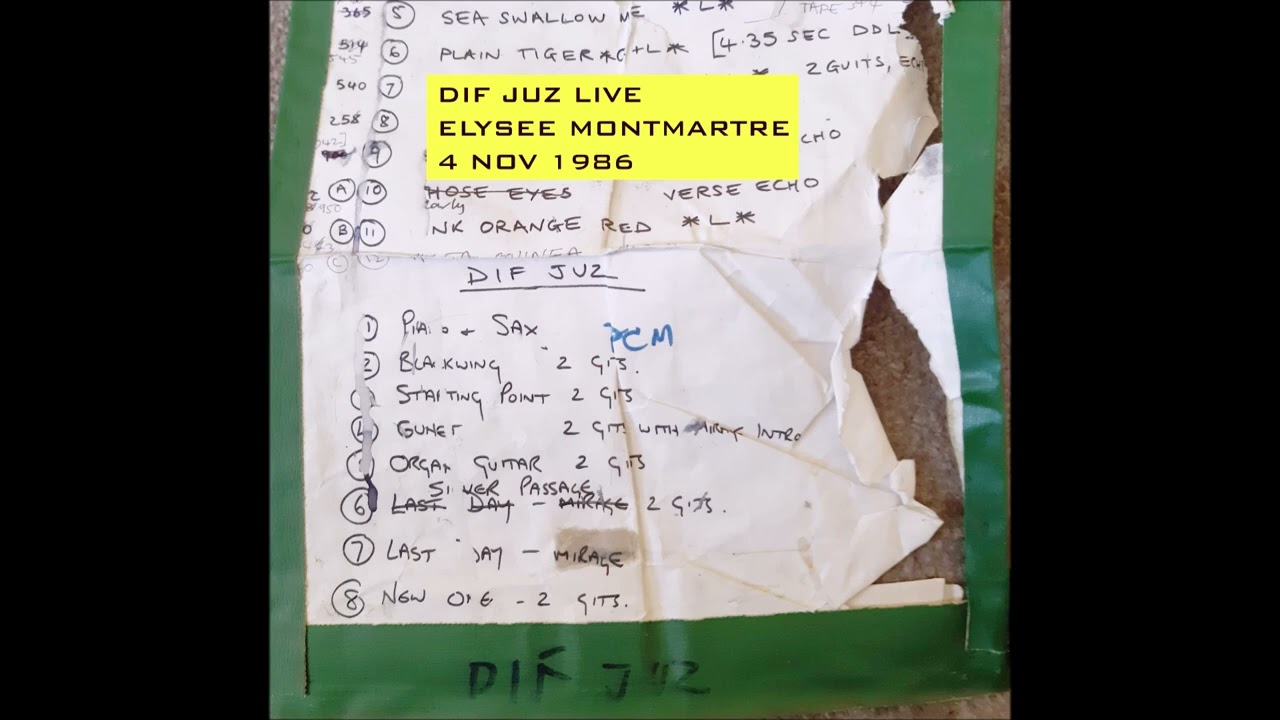 365 5 SEA SWALLOW ME *L*
514 6 PLAIN TIGER *G+L* [4.35 SEC DDL
545 2 GUITS, ECH
540 7
DIF JUZ LIVE
ELYSEE MONTMARTRE
4 NOV 1986
258 8 CHO
9
A 10 HOSE EYES VERSE ECHO
950 early
B 11 NK ORANGE RED *L*
C 12 GUINEA
DIF JUZ
1 PIANO + SAX PCM
2 BLACKWING 2 GITS.
STARTING POINT 2 GITS
GUNET 2 GITS WITH INTRO
ORGAN GUITAR 2 GITS
SILVER PASSAGE
6 LAST DAY - MIRAGE 2 GITS.
7 LAST DAY - MIRAGE
8 NEW ONE - 2 GITS.
DIF JUZ